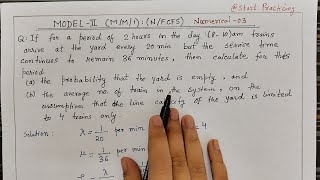 @Start Practicing
MODEL-II (M/M/1):(N/FCFS) Numerical-03
Q: If for a period of 2 hours in the day (8-10)am trains
arrive at the yard every 20 min but the service time
continues to remain 36 minutes, then calculate for this
period
(a) the probability that the yard is empty, and
(b) the average no. of train in the system, on the
assumption that the line capacity of the yard is limited
to 4 trains only.
Solution: λ = 1/20 per min = 4
μ = 1/36 per min
λ